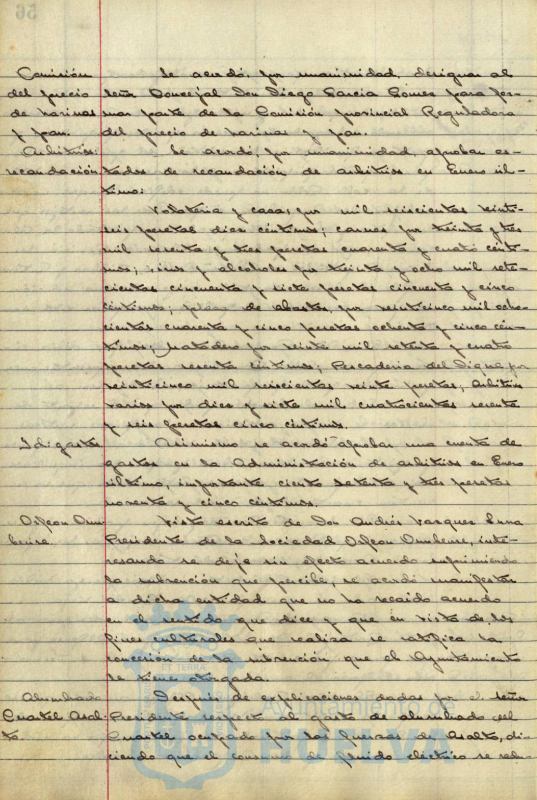 56
Comisión
del precio
de harinas
y pan.
Se acordó, por unanimidad, designar al
señor Concejal Don Diego Garcia Gomez para for-
mar parte de la Comisión provincial Reguladora
del precio de harinas y pan.
Arbitrios:
recaudación
Se acordó, por unanimidad, aprobar es-
tados de recaudación de arbitrios en Enero úl-
timo:
Volateria y caza, por mil seiscientas veinti-
seis pesetas diez céntimos; carnes por treinta y tres
mil sesenta y tres pesetas cuarenta y cuatro cénti-
mos; vinos y alcoholes por treinta y ocho mil sete-
cientas cincuenta y siete pesetas cincuenta y cinco
céntimos; plaza de abastos, por veinticinco mil ocho-
cientas cuarenta y cinco pesetas ochenta y cinco cén-
timos; Matadero por veinte mil setenta y cuatro
pesetas sesenta céntimos; Pescaderia del Dique por
veinticinco mil seiscientas veinte pesetas; Arbitrios
varios por diez y siete mil cuatrocientas sesenta
y seis pesetas cinco céntimos.
Id: gastos
Asimismo se acordó aprobar una cuenta de
gastos en la Administración de arbitrios en Enero
último, importante ciento setenta y tres pesetas
noventa y cinco céntimos.
Orfeon Onu-
bense.
Visto escrito de Don Andrés Vazquez
Presidente de la Sociedad Orfeon Onubense, inte-
resando se deje sin efecto acuerdo suprimiendo
la subvención que percibe, se acordó manifestar
a dicha entidad que no ha recaido acuerdo
en el sentido que dice y que en vista de los
fines culturales que realiza se ratifica la
concesión de la subvención que el Ayuntamiento
le tiene otorgada.
Alumbrado
Cuartel Asal-
to.
Después de explicaciones dadas por el señor
Presidente respecto al gasto de alumbrado del
Cuartel ocupado por las fuerzas de Asalto, di-
ciendo que el consumo de fluido electrico se redu-
Ayuntamiento de
HUELVA